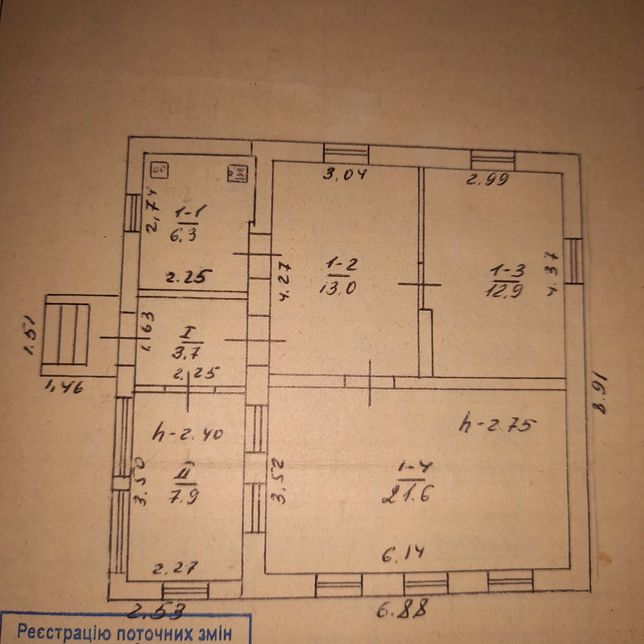 3.04
2.99
2,74
1-1
6.3
2.25
4.27
1-2
13.0
1-3
12.9
4.37
1.51
1,46
1,63
I
3.7
2,25
8.91
h-2.40
h-2.75
3.50
II
7.9
3.52
1-4
21.6
2.27
6.14
2.53
6.88
Реєстрацію поточних змін